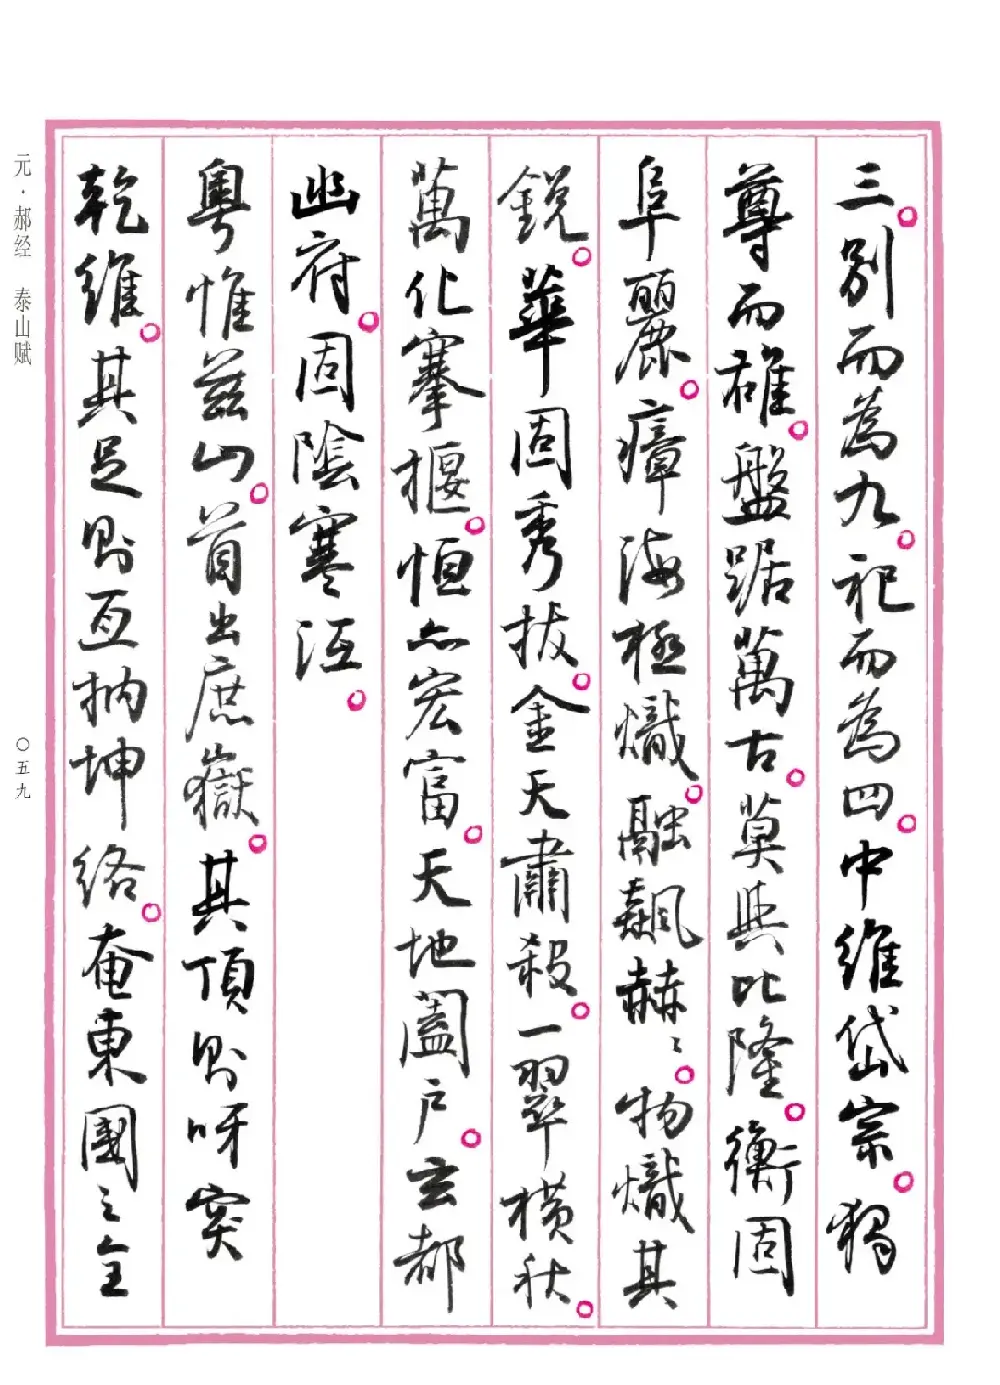 三。別而為九。祀而為四。中維岱宗。獨
尊而雄。盤踞萬古。莫與比隆。衡固
阜麗。瘴海極熾。融飆赫〻。物熾其
銳。華固秀拔。金天肅殺。一翠橫秋。
萬化搴揠。恒亦宏富。天地闔戶。玄都
幽府。固陰寒沍。
粵惟茲山。首出庶嶽。其頂則呀突
乾維。其足則亙抐坤絡。奄東國之全
元·郝经 泰山赋
〇五九